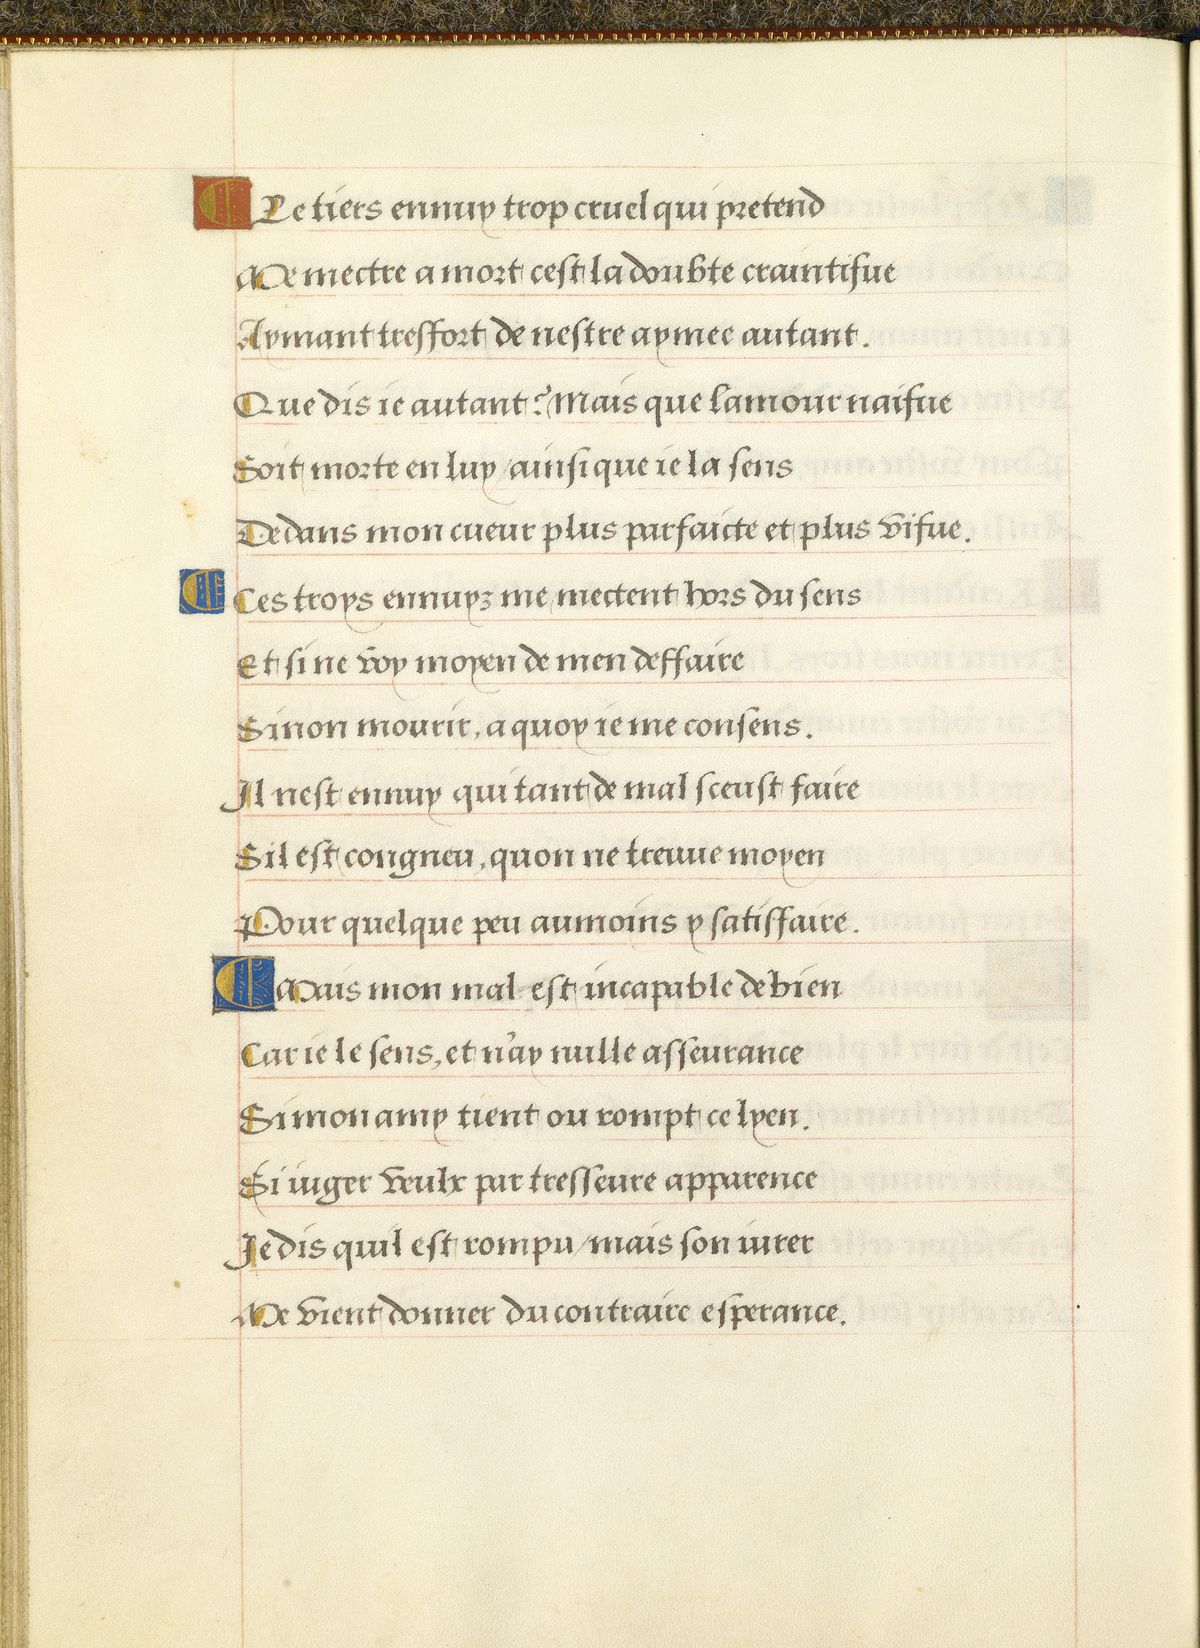 Le tiers ennuy trop cruel qui pretend
Me mectre a mort cest la doubte craintifue
Aymant tresfort de nestre aymee autant.
Que dis ie autant? Mais que lamour naifue
Soit morte en luy / ainsi que ie la sens
Dedans mon cueur plus parfaicte et plus vifue.
Ces troys ennuyz me mectent hors du sens
Et si ne voy moyen de men deffaire
Sinon mourir, a quoy ie me consens.
Il nest ennuy qui tant de mal sceust faire
Sil est congneu, quon ne treuue moyen
Pour quelque peu aumoins y satisfaire.
Mais mon mal est incapable de bien
Car ie le sens, et n'ay nulle asseurance
Si mon amy tient ou rompt ce lyen.
Si iuger veulx par tresseure apparence
Je dis quil est rompu / mais son iurer
Me vient donner du contraire esperance.